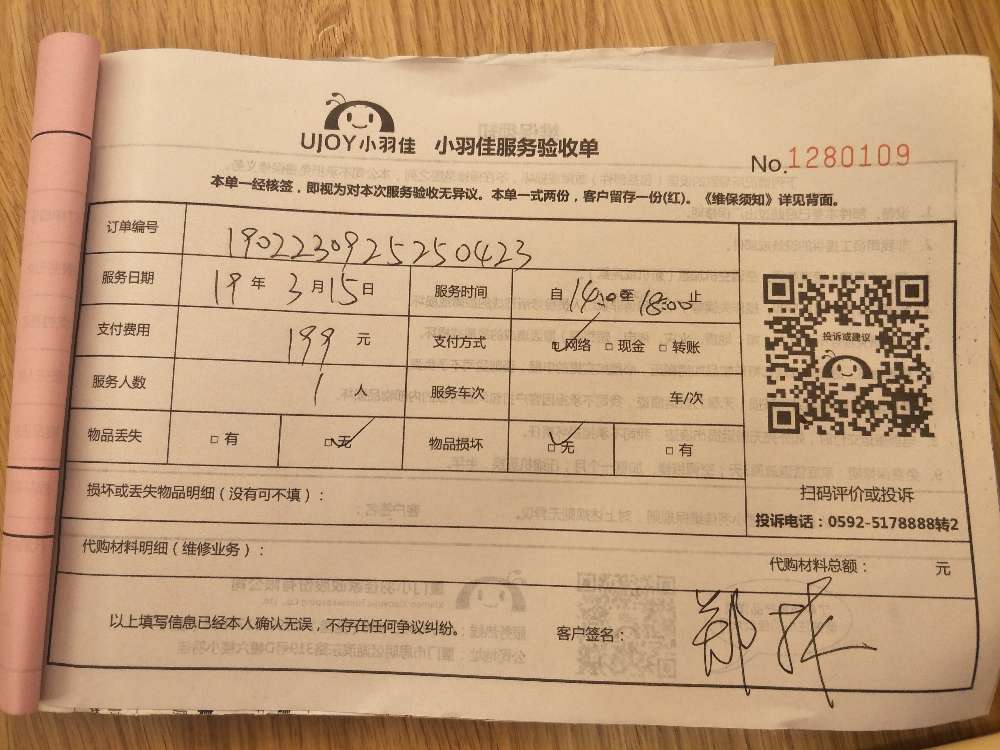 UJOY小羽佳 小羽佳服务验收单
No.1280109
本单一经核签，即视为对本次服务验收无异议。本单一式两份，客户留存一份(红)。《维保须知》详见背面。
订单编号 1902230925250423
服务日期 19年3月15日 服务时间 自14:00至18:00止
支付费用 199元 支付方式 ☑网络 □现金 □转账
服务人数 1人 服务车次 车/次
物品丢失 □有 ☑无 物品损坏 ☑无 □有
投诉或建议
扫码评价或投诉
投诉电话：0592-5178888转2
损坏或丢失物品明细（没有可不填）：
代购材料明细（维修业务）： 代购材料总额： 元
以上填写信息已经本人确认无误，不存在任何争议纠纷。 客户签名：郑